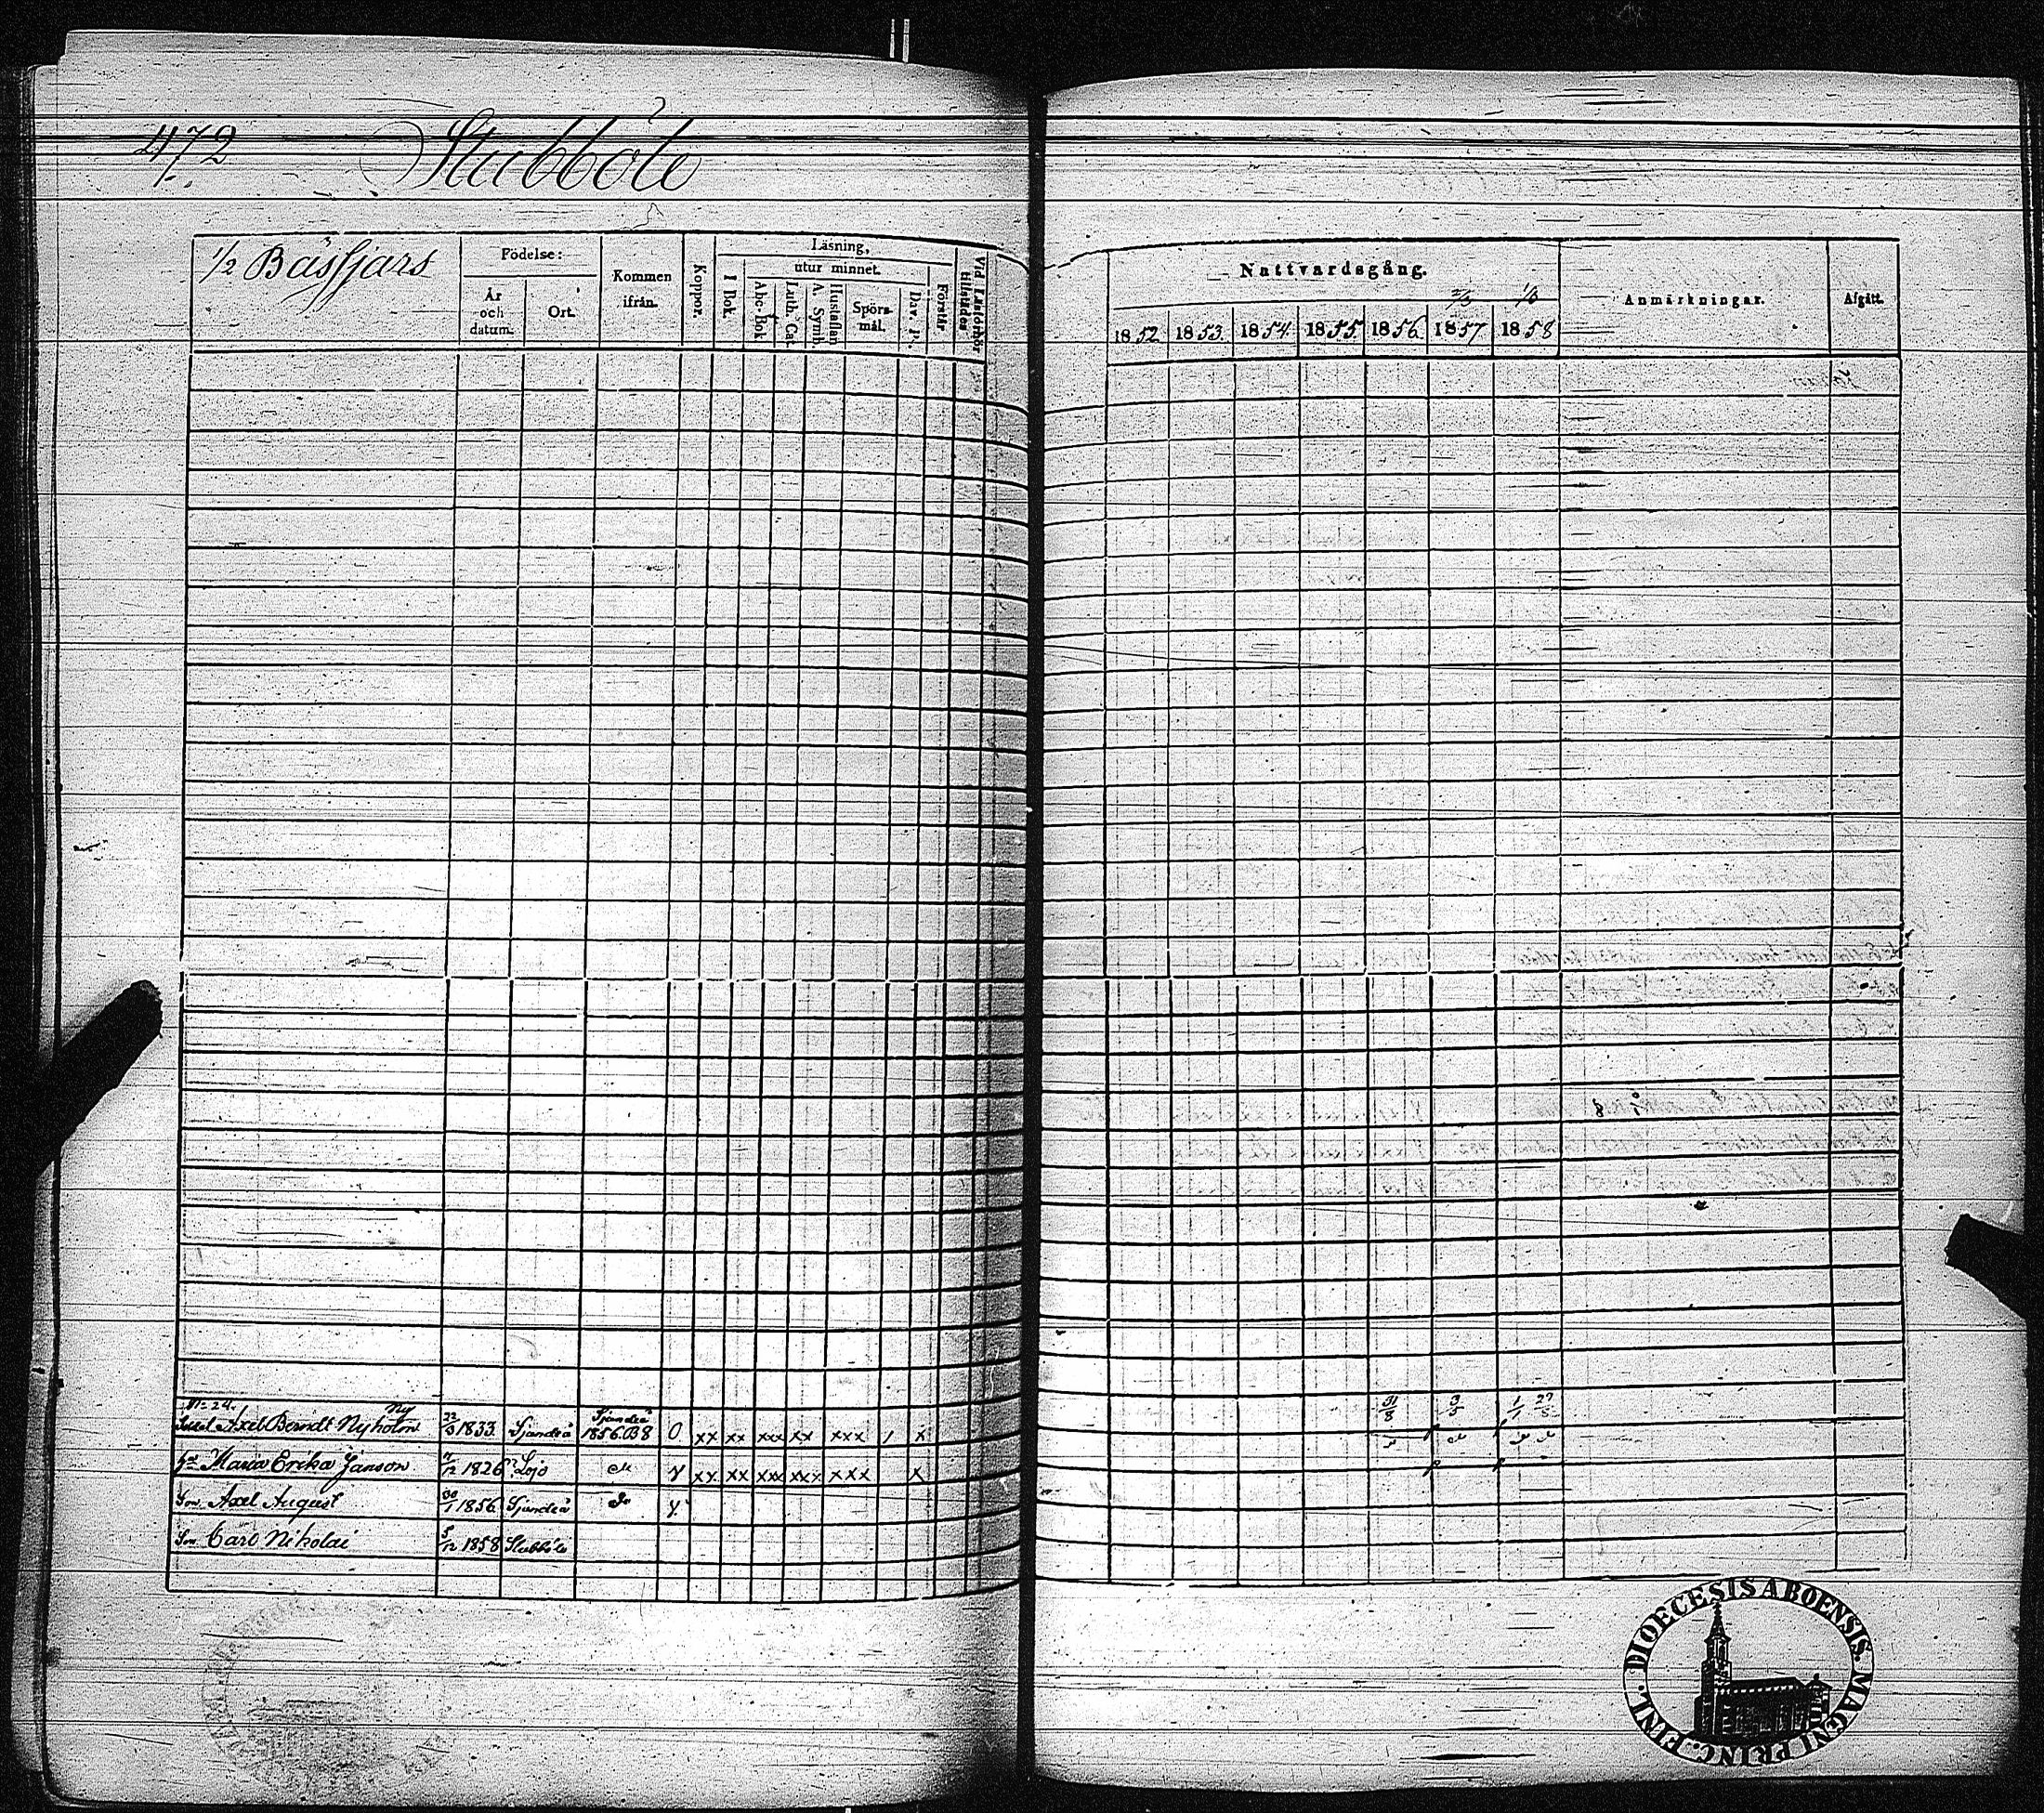 472
Stubböle
1/2 Båsgars
Födelse:
År och datum.
Ort.
Kommen ifrån.
Koppor.
Läsning,
I Bok.
utur minnet.
Abc bok
Luth. Cat.
A. Symb.
Hustaflan
Spörsmål.
Dav. P.
Förstår
Vid Läsförhör tillstädes
Nattvardsgång.
1852. 1853. 1854. 1855. 1856. 1857 1858
Anmärkningar.
Afgått.
N:o 24.
Axel Berndt Nyholm 22/3 1833 Sjundeå Sjundeå 1856.B8 0 xx xx xxx xx xxx 1 x 31/8 3/5 1/1 27/5
Maria Erika Janson 11/12 1826 Lojo do v xx xx xxx xxx xxx x do do do do
Son Axel August 30/1 1856 Sjundeå do v.
Son Carl Nikolai 5/12 1858 Stubböle
DIOECESIS ABOENSIS. MAGNI PRINC. FINL.